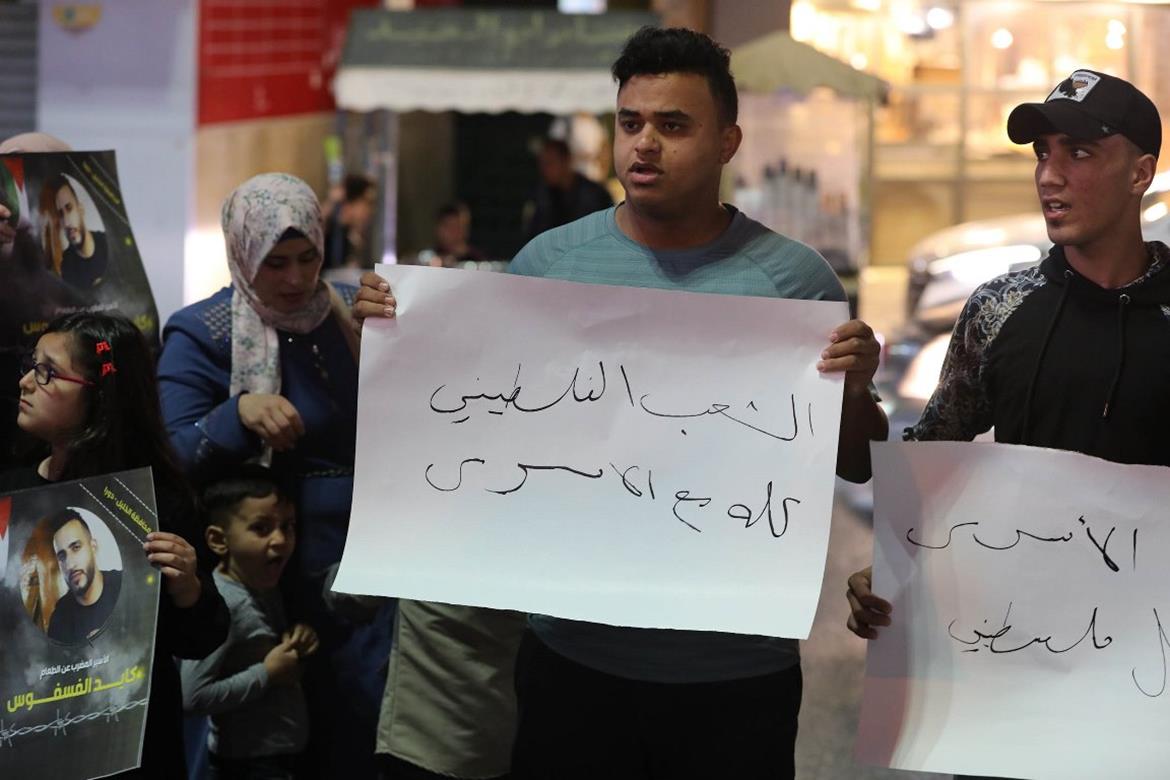 الشعب الفلسطيني
كله مع الاسرى
الأسرى
فلسطيني
محافظة الخليل - دورا
الأسير المضرب عن الطعام
كايد الفسفوس